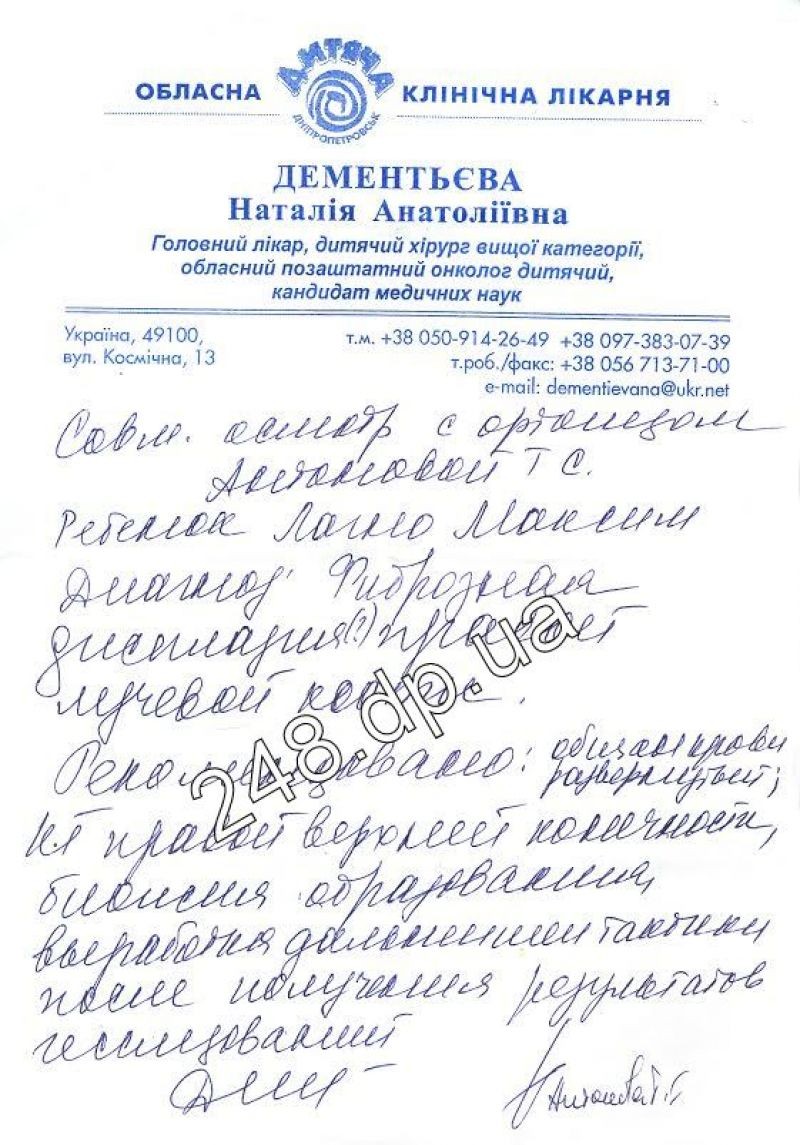 ОБЛАСНА ДИТЯЧА КЛІНІЧНА ЛІКАРНЯ
ДНІПРОПЕТРОВСЬК
ДЕМЕНТЬЄВА
Наталія Анатоліївна
Головний лікар, дитячий хірург вищої категорії,
обласний позаштатний онколог дитячий,
кандидат медичних наук
Україна, 49100,
вул. Космічна, 13
т.м. +38 050-914-26-49 +38 097-383-07-39
т.роб./факс: +38 056 713-71-00
e-mail: dementievana@ukr.net
Совм. осмотр с ортопедом
Антоновой Т С.
Ребенок Максим
Диагноз: Фиброзная
дисплазия(?) правой
лучевой кости.
Рекомендовано: общ ан крови
развернутый;
КТ правой верхней конечности,
биопсия образования,
выработка дальнейшей тактики
после получения результатов
исследований
248.dp.ua